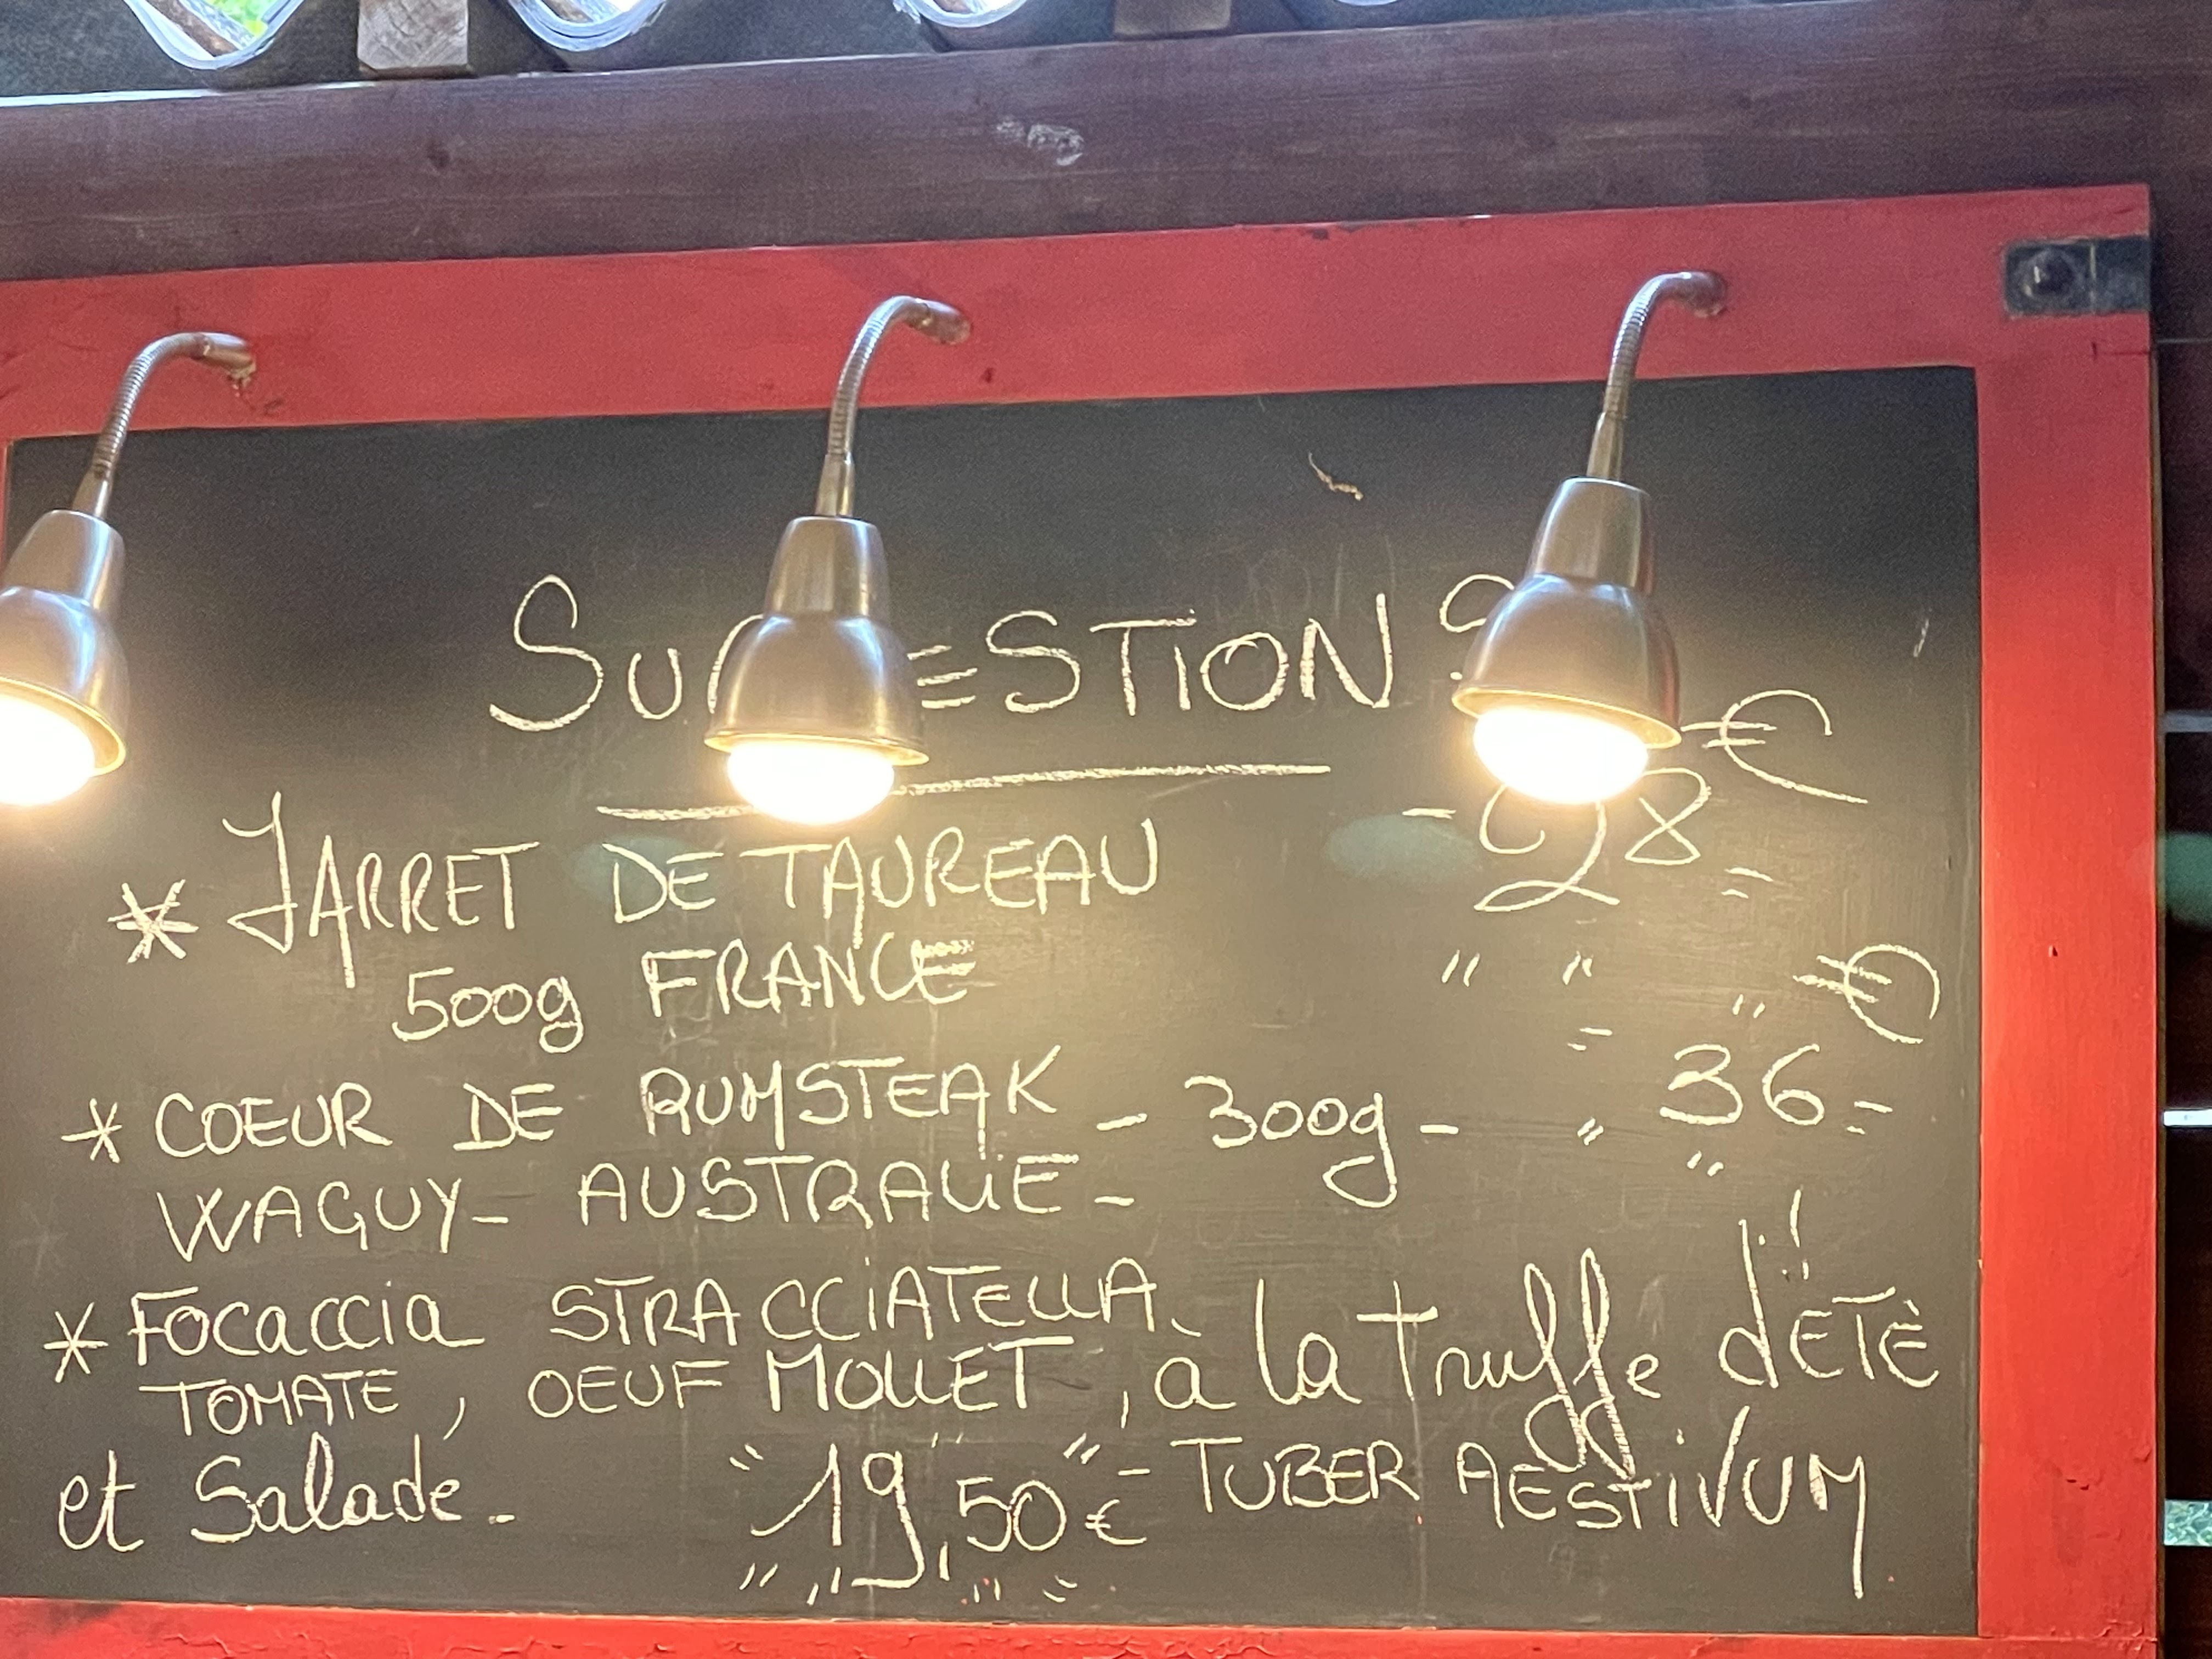 SUGGESTIONS
* JARRET DE TAUREAU - 28 €
500g FRANCE
* COEUR DE RUMSTEAK - 300g - 36 €
WAGUY - AUSTRALIE -
* Focaccia STRACCIATELLA
TOMATE, OEUF MOLLET, à la truffe d'ETÈ
et Salade. - "19,50€" - TUBER AESTIVUM